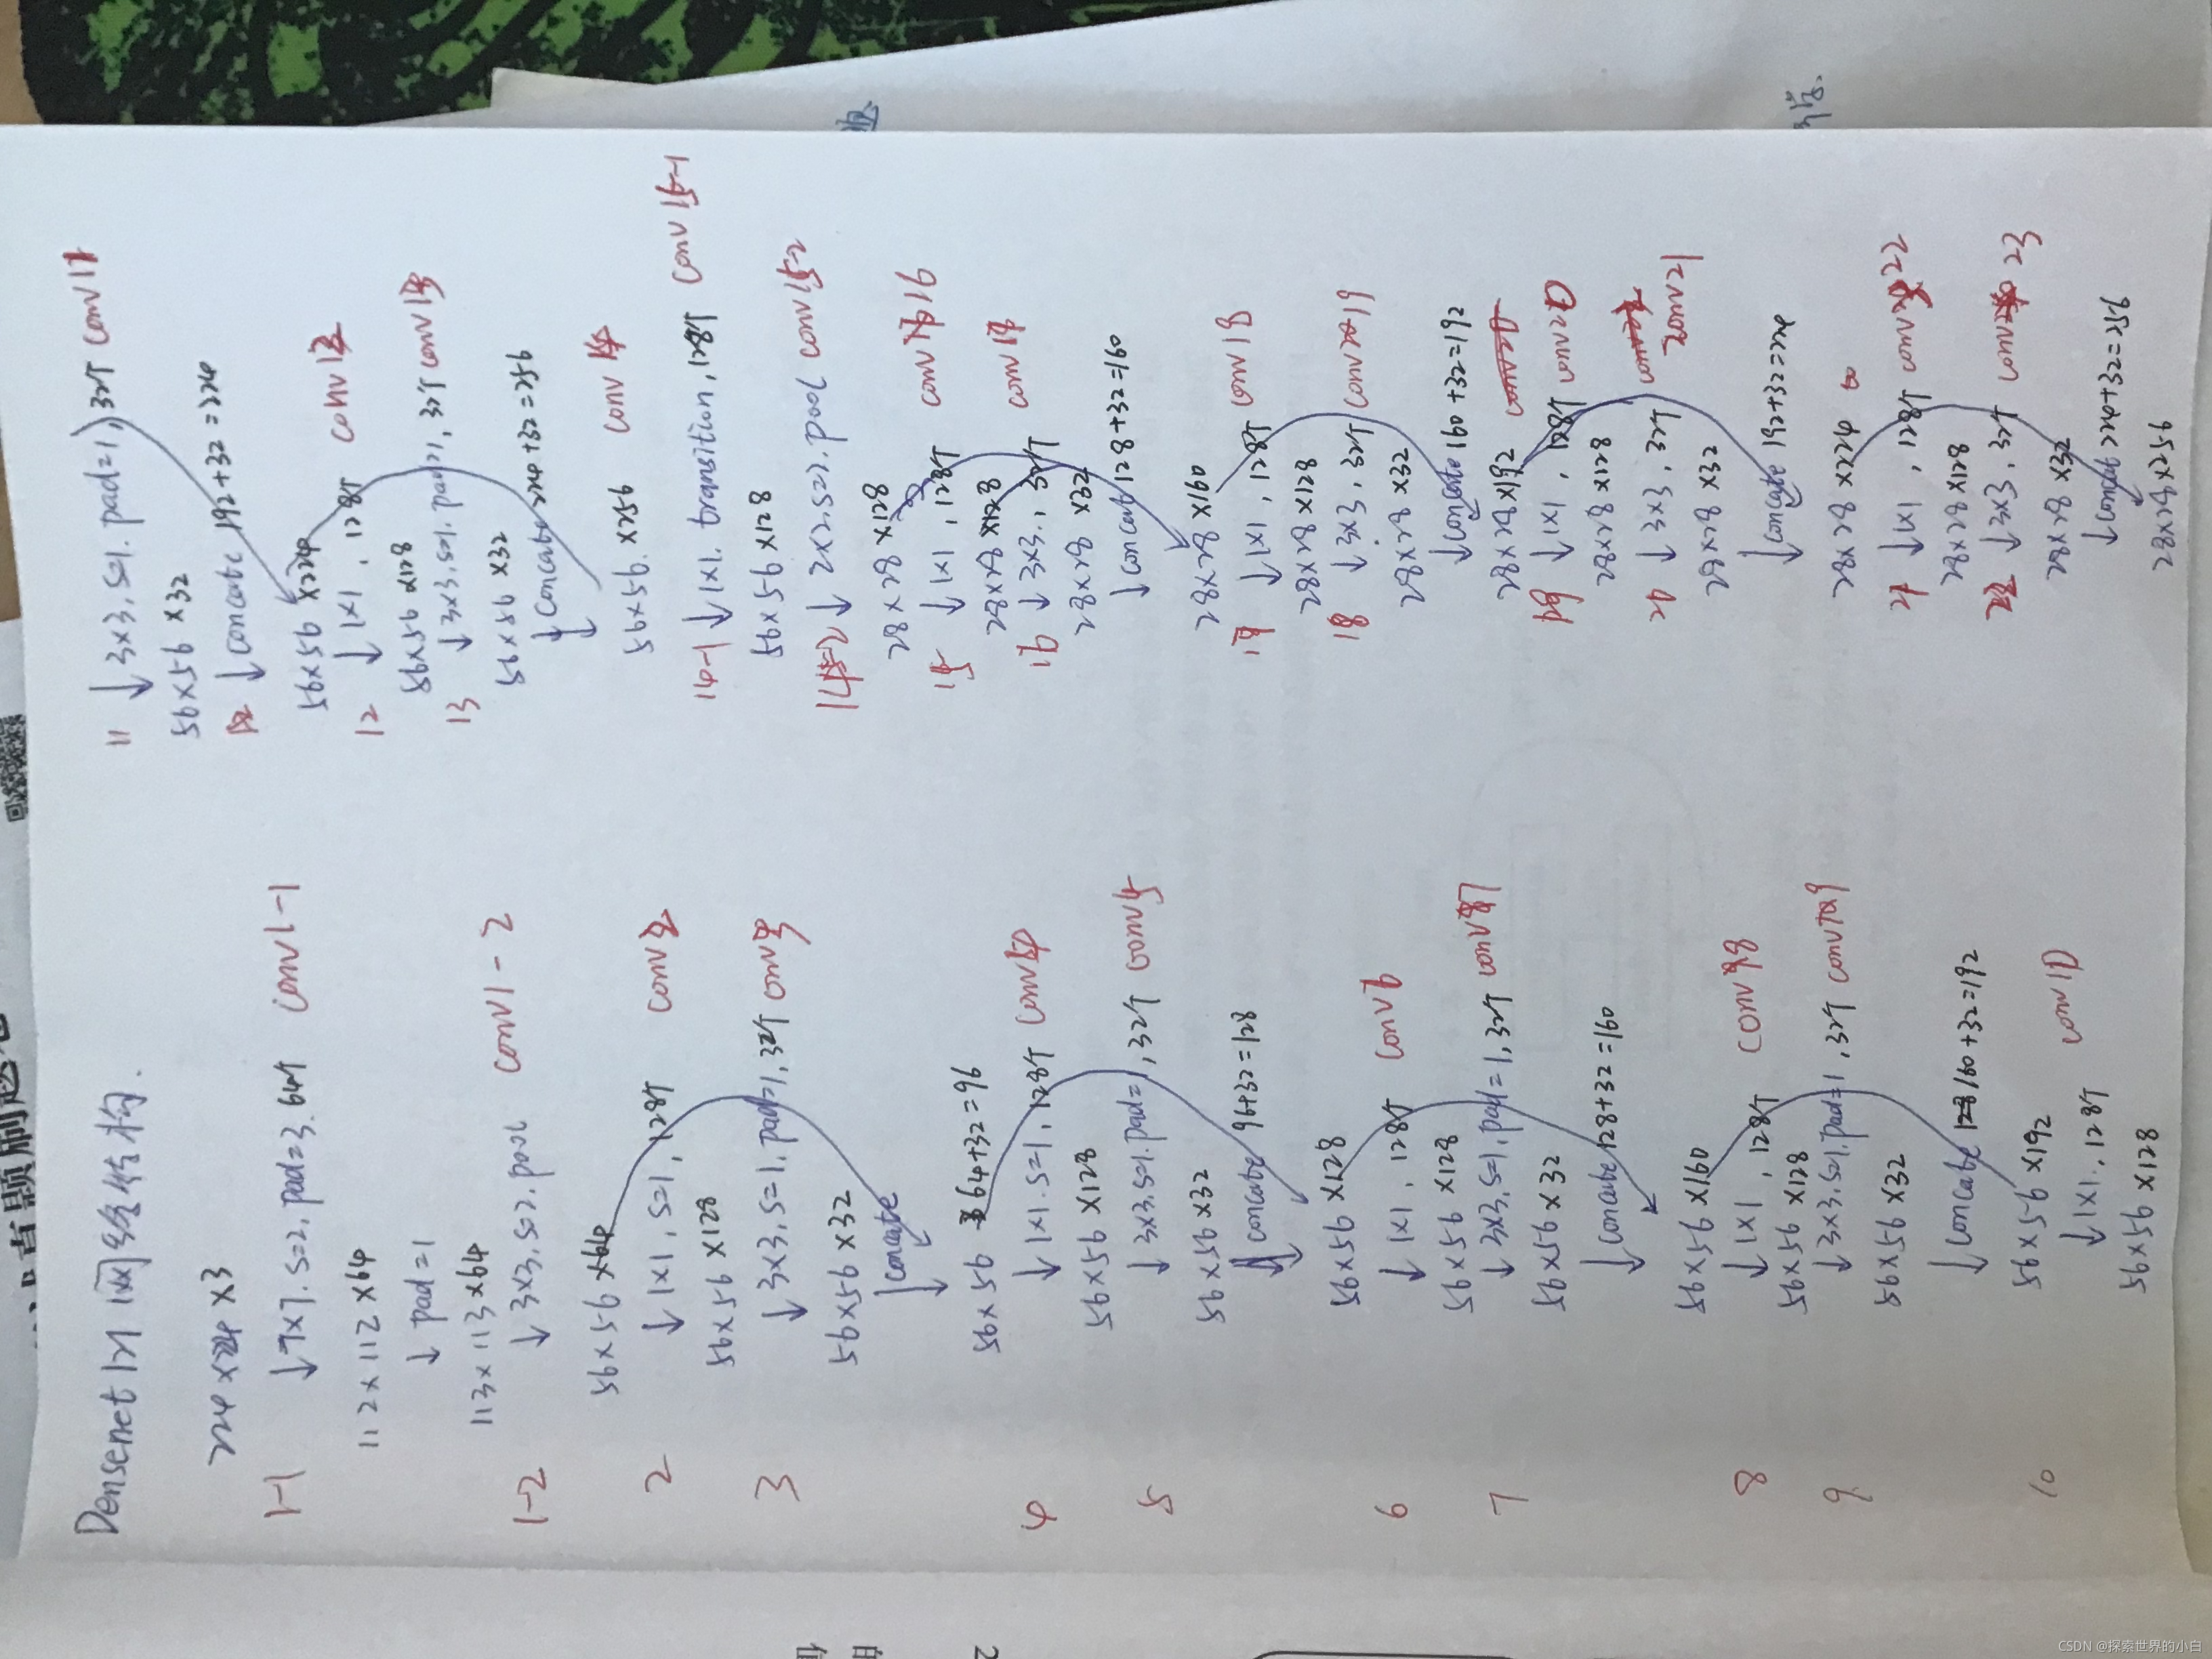 Densenet 121 网络结构.
224×224×3
1-1 ↓7×7. s=2, pad=3. 64个 conv1-1
112×112×64
↓ pad=1
113×113×64
1-2 ↓ 3×3, s=2. pool conv1-2
56×56×64
2 ↓1×1, s=1, 128个 conv2
56×56×128
3 ↓3×3, s=1. pad=1, 32个 conv3
56×56×32
↓concate
56×56 64+32=96
4 ↓1×1. s=1, 128个 conv4
56×56×128
5 ↓3×3, s=1. pad=1, 32个 conv5
56×56×32
↓concate 96+32=128
56×56×128
6 ↓1×1, 128个 conv6
56×56×128
7 ↓3×3, s=1, pad=1, 32个 conv7
56×56×32
↓concate 128+32=160
56×56×160
8 ↓1×1, 128个 conv8
56×56×128
9 ↓3×3, s=1. pad=1, 32个 conv9
56×56×32
↓concate 160+32=192
56×56×192
10 ↓1×1, 128个 conv10
56×56×128
11 ↓3×3, s=1. pad=1, 32个 conv11
56×56×32
↓concate 192+32=224
56×56×224
12 ↓1×1, 128个 conv12
56×56×128
13 ↓3×3, s=1. pad=1, 32个 conv13
56×56×32
↓concate 224+32=256
56×56×256 conv14
14-1 ↓1×1. transition, 128个 conv15-1
56×56×128
14-2 ↓2×2, s=2. pool conv15-2
28×28×128
15 ↓1×1, 128个 conv16
28×28×128
16 ↓3×3, 32个 conv17
28×28×32
↓concat 128+32=160
28×28×160
17 ↓1×1, 128个 conv18
28×28×128
18 ↓3×3, 32个 conv19
28×28×32
↓concate 160+32=192
28×28×192
19 ↓1×1, 128个 conv20
28×28×128
20 ↓3×3, 32个 conv21
28×28×32
↓concate 192+32=224
28×28×224
21 ↓1×1, 128个 conv22
28×28×128
22 ↓3×3, 32个 conv23
28×28×32
↓concat 224+32=256
28×28×256
CSDN @探索世界的小白